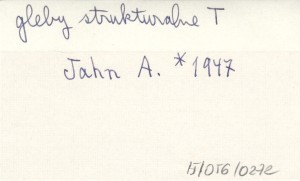 gleby strukturalne T
Jahn A. *1947
15/056/0272